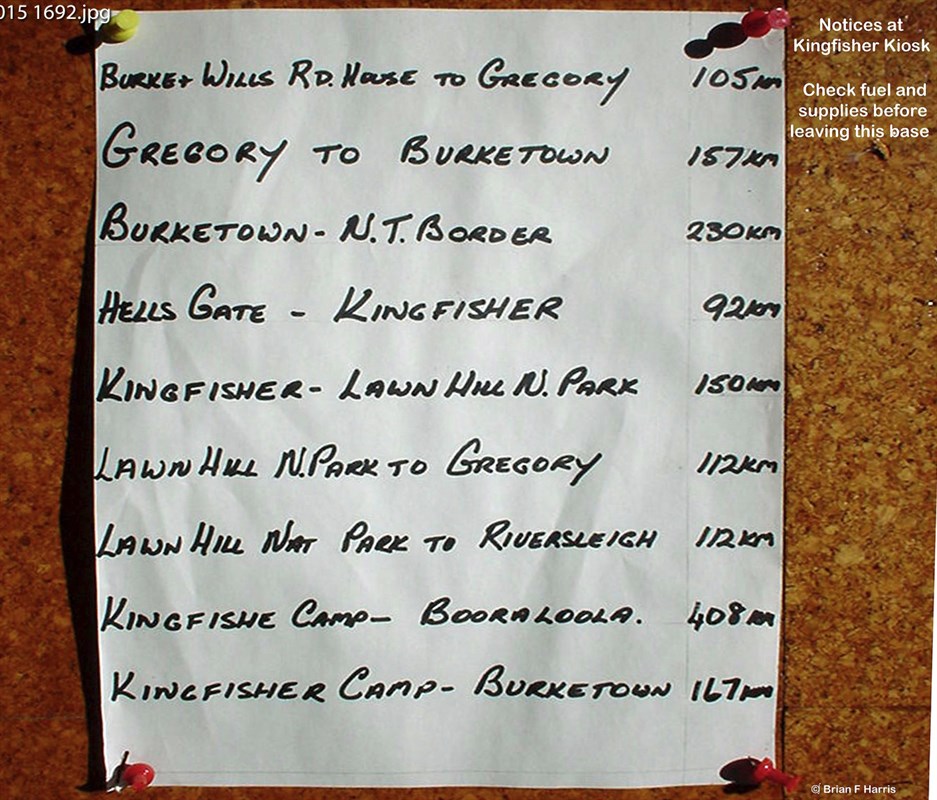 015 1692.jpg
Notices at
Kingfisher Kiosk
Check fuel and
supplies before
leaving this base
BURKE+ WILLS RD. HOUSE TO GREGORY 105km
GREGORY TO BURKETOWN 157KM
BURKETOWN - N.T. BORDER 230KM
HELLS GATE - KINGFISHER 92KM
KINGFISHER - LAWN HILL N. PARK 150KM
LAWN HILL N.PARK TO GREGORY 112KM
LAWN HILL NAT PARK TO RIVERSLEIGH 112KM
KINGFISHE CAMP - BOORALOOLA. 408KM
KINGFISHER CAMP - BURKETOWN 167KM
© Brian F Harris